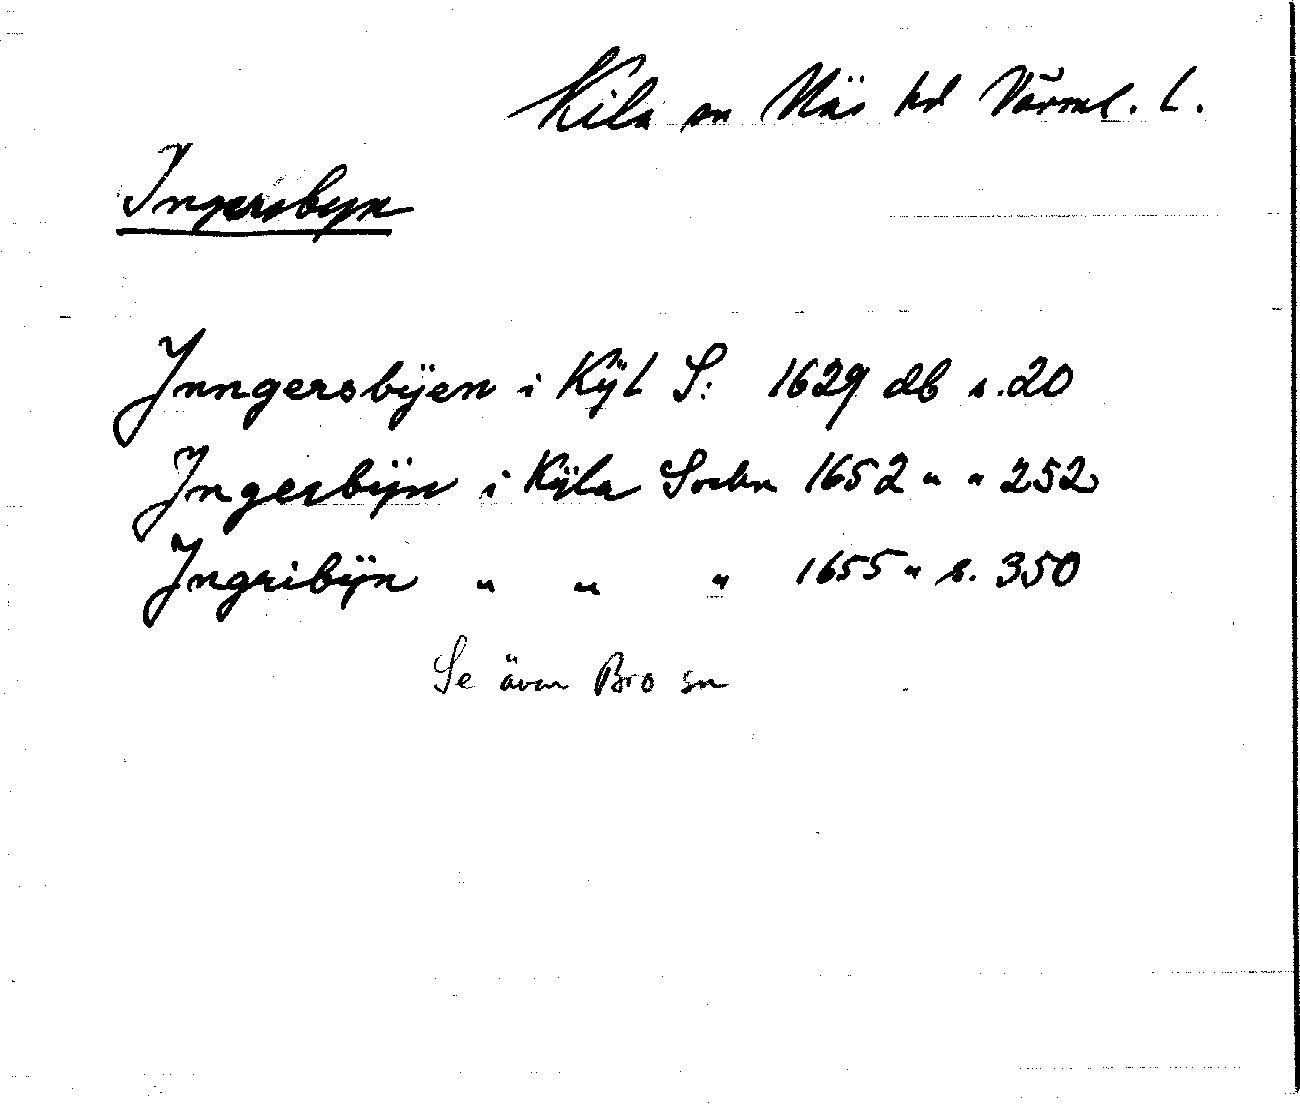 Kila sn Näs hd Värml. L.
Ingersbyn
Jnngersbÿen i Kÿl S: 1629 db s. 20
Jngersbÿn i Kÿla Sockn 1652 " " 252
Jngribÿn " " " 1655 " s. 350
Se även Bro sn